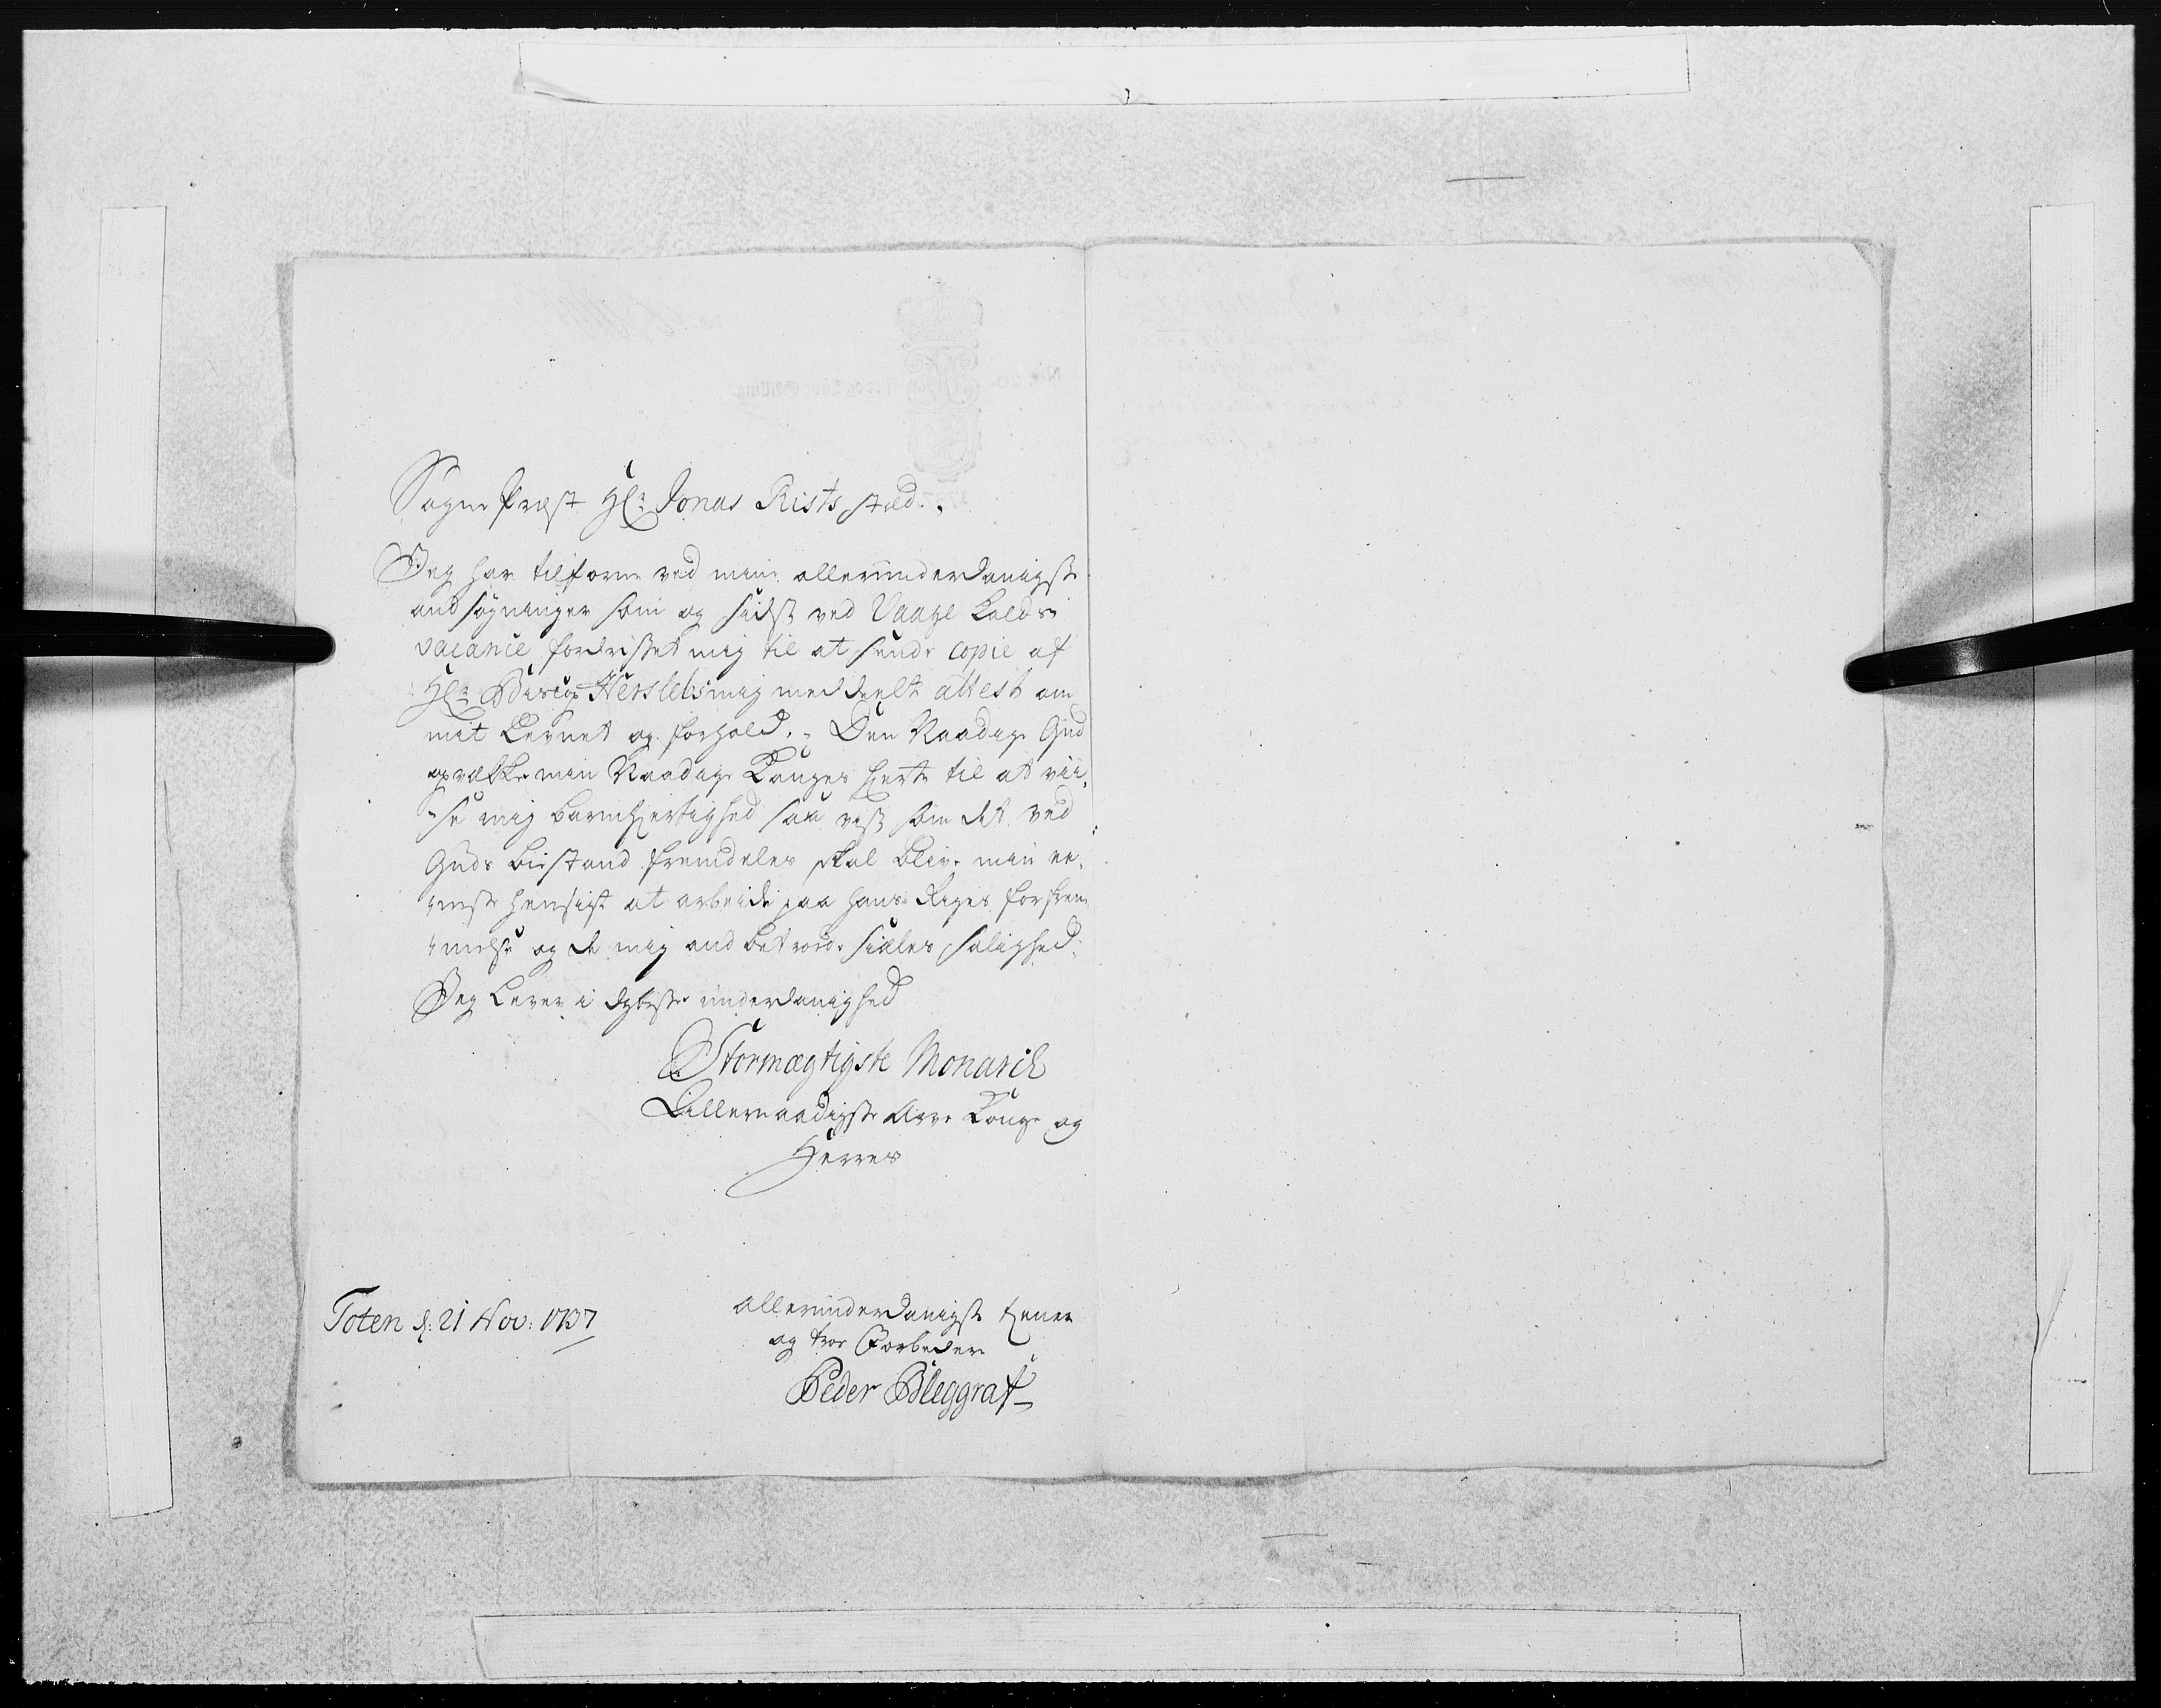 Sogne Præst Hr: Jonas Rists sted.
Jeg har tilforne ved mine allerunderdanigste
andsøgninger som og sidst ved Vaage Kalds
vacance fordristet mig til at sende copie af
Hr: Biscop Herslebs mig meddeelte attest om
mit Levnet og forhold. Den Naadige Gud
opvekke min Naadige Konges hierte til at vii-
se mig barmhiertighed saa vist som det ved
Guds bistand fremdeles skal blive min ee-
neste hensigt at arbeide paa hans Riges forfrem
melse og de mig andbetroede siæles salighed.
Jeg Lever i dybeste underdanighed
Stormægtigste Monarch
Allernaadigste Arve Konge og
Herres
Toten d: 21 Nov: 1737
allerunderdanigste tiener
og troe Forbeder
Peder Bleggraf